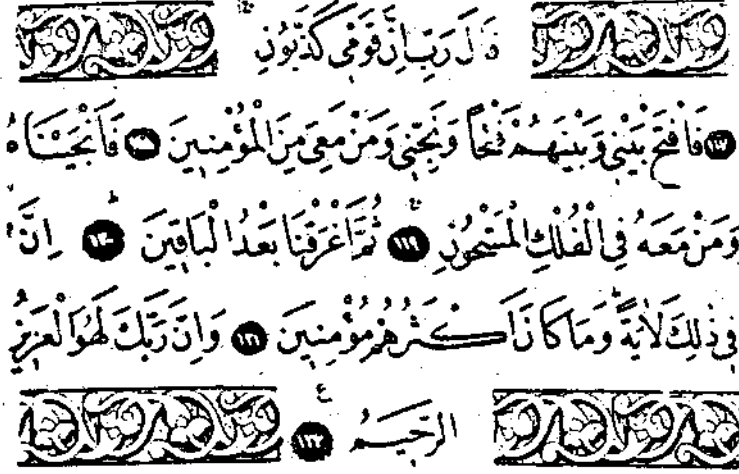 قَالَ رَبِّ اِنَّ قَوْمٖى كَذَّبُونِ
﴿١١٧﴾ فَافْتَحْ بَيْنٖى وَبَيْنَهُمْ فَتْحًا وَنَجِّنٖى وَمَنْ مَعِىَ مِنَ الْمُؤْمِنٖينَ ﴿١١٨﴾ فَاَنْجَيْنَاهُ
وَمَنْ مَعَهُ فِى الْفُلْكِ الْمَشْحُونِ ﴿١١٩﴾ ثُمَّ اَغْرَقْنَا بَعْدُ الْبَاقٖينَ ﴿١٢٠﴾ اِنَّ
فٖى ذٰلِكَ لَاٰيَةً وَمَا كَانَ اَكْثَرُهُمْ مُؤْمِنٖينَ ﴿١٢١﴾ وَاِنَّ رَبَّكَ لَهُوَ الْعَزٖيزُ
الرَّحٖيمُ ﴿١٢٢﴾